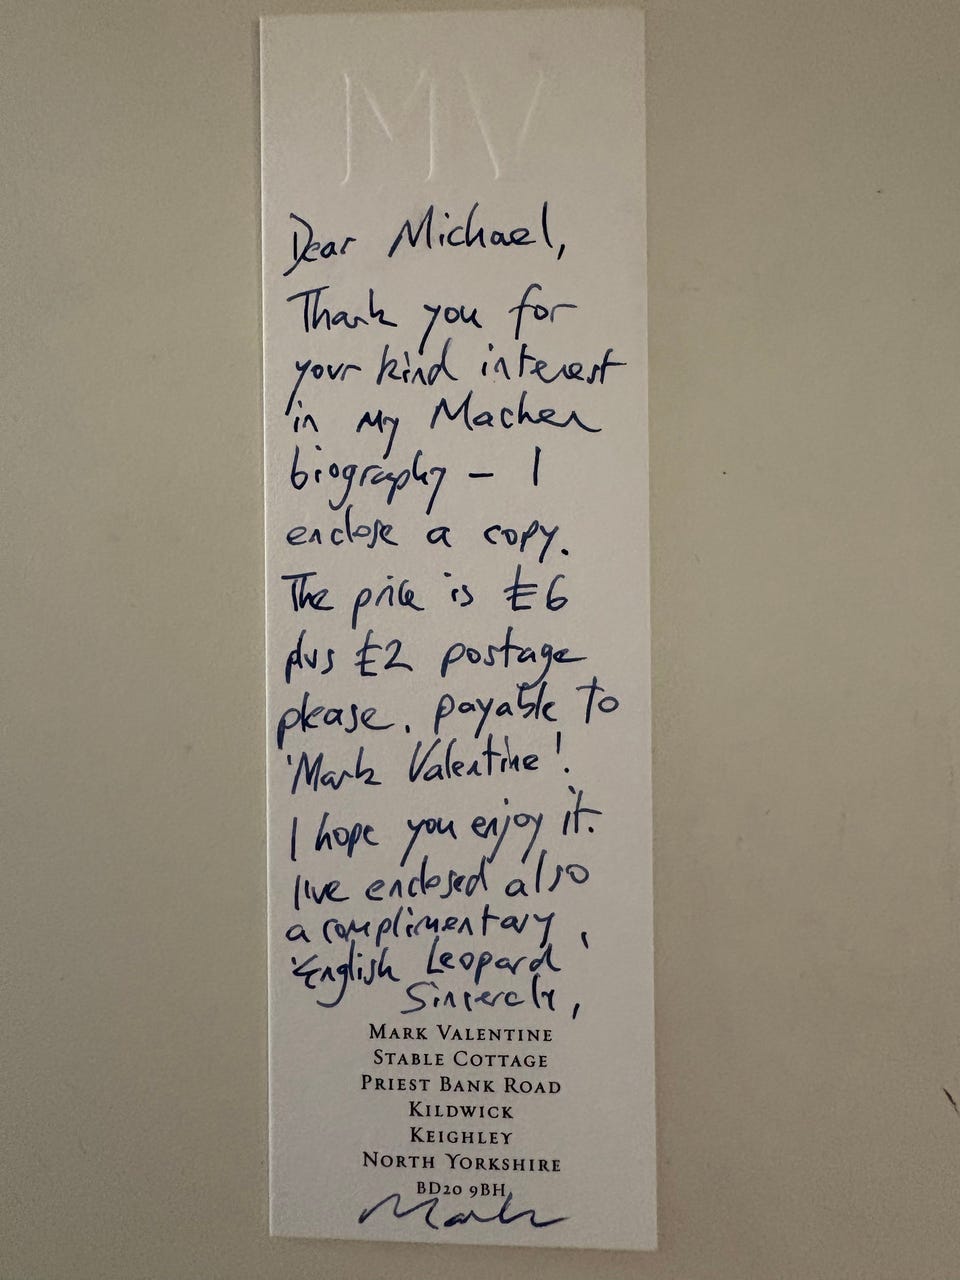 MV
Dear Michael,
Thank you for
your kind interest
in my Machen
biography – I
enclose a copy.
The price is £6
plus £2 postage
please, payable to
'Mark Valentine'.
I hope you enjoy it.
I've enclosed also
a complimentary
'English Leopard'
Sincerely,
MARK VALENTINE
STABLE COTTAGE
PRIEST BANK ROAD
KILDWICK
KEIGHLEY
NORTH YORKSHIRE
BD20 9BH
Mark